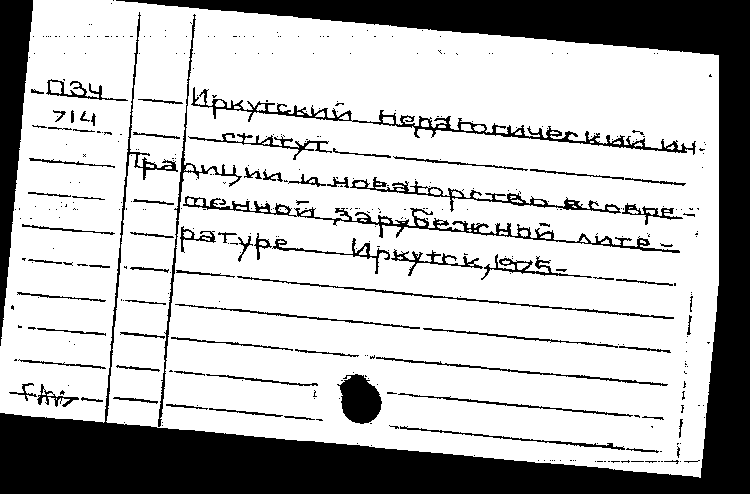 ПЗЧ
714
Иркутский педагогический ин-
ститут.
Традиции и новаторство в совре-
менной зарубежной лите-
ратуре. Иркутск, 1975-